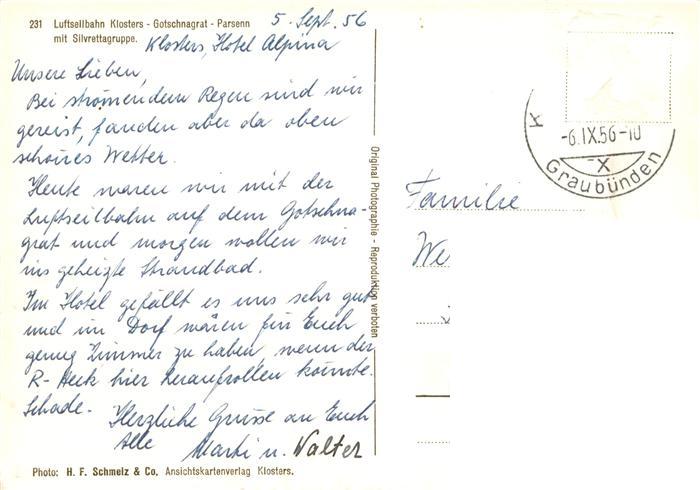 231 Luftseilbahn Klosters - Gotschnagrat - Parsenn
mit Silvrettagruppe.
5. Sept. 56
Klosters, Hotel Alpina
Unsere Lieben,
Bei strömendem Regen sind wir
gereist, fanden aber da oben
schönes Wetter.
Heute waren wir mit der
Luftseilbahn auf dem Gotschna-
grat und morgen wollen wir
ins geheizte Strandbad.
Im Hotel gefällt es uns sehr gut
und im Dorf wären für Euch
genug Zimmer zu haben, wenn der
R- hier heraufrollen könnte.
Schade.
Herzliche Grüsse an Euch
Alle
u. Walter
Photo: H. F. Schmelz & Co. Ansichtskartenverlag Klosters.
Original Photographie - Reproduktion verboten
K
-6.IX.56-10
-X
Graubünden
Familie
We